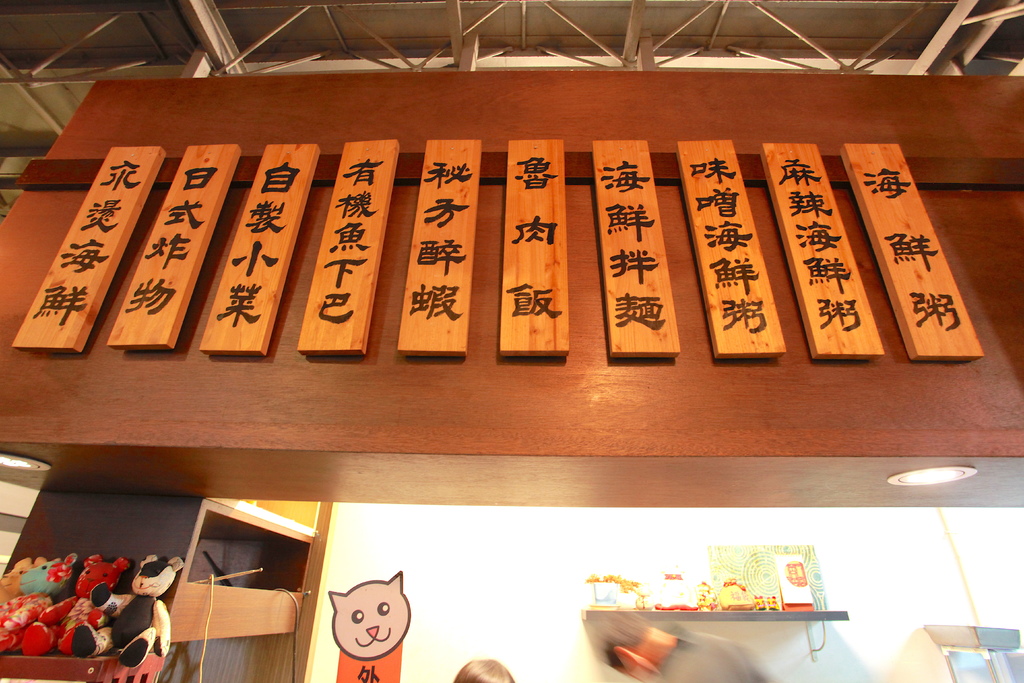 海鮮粥
麻辣海鮮粥
味噌海鮮粥
海鮮拌麵
魯肉飯
秘方醉蝦
有機魚下巴
自製小菜
日式炸物
汆燙海鮮
外